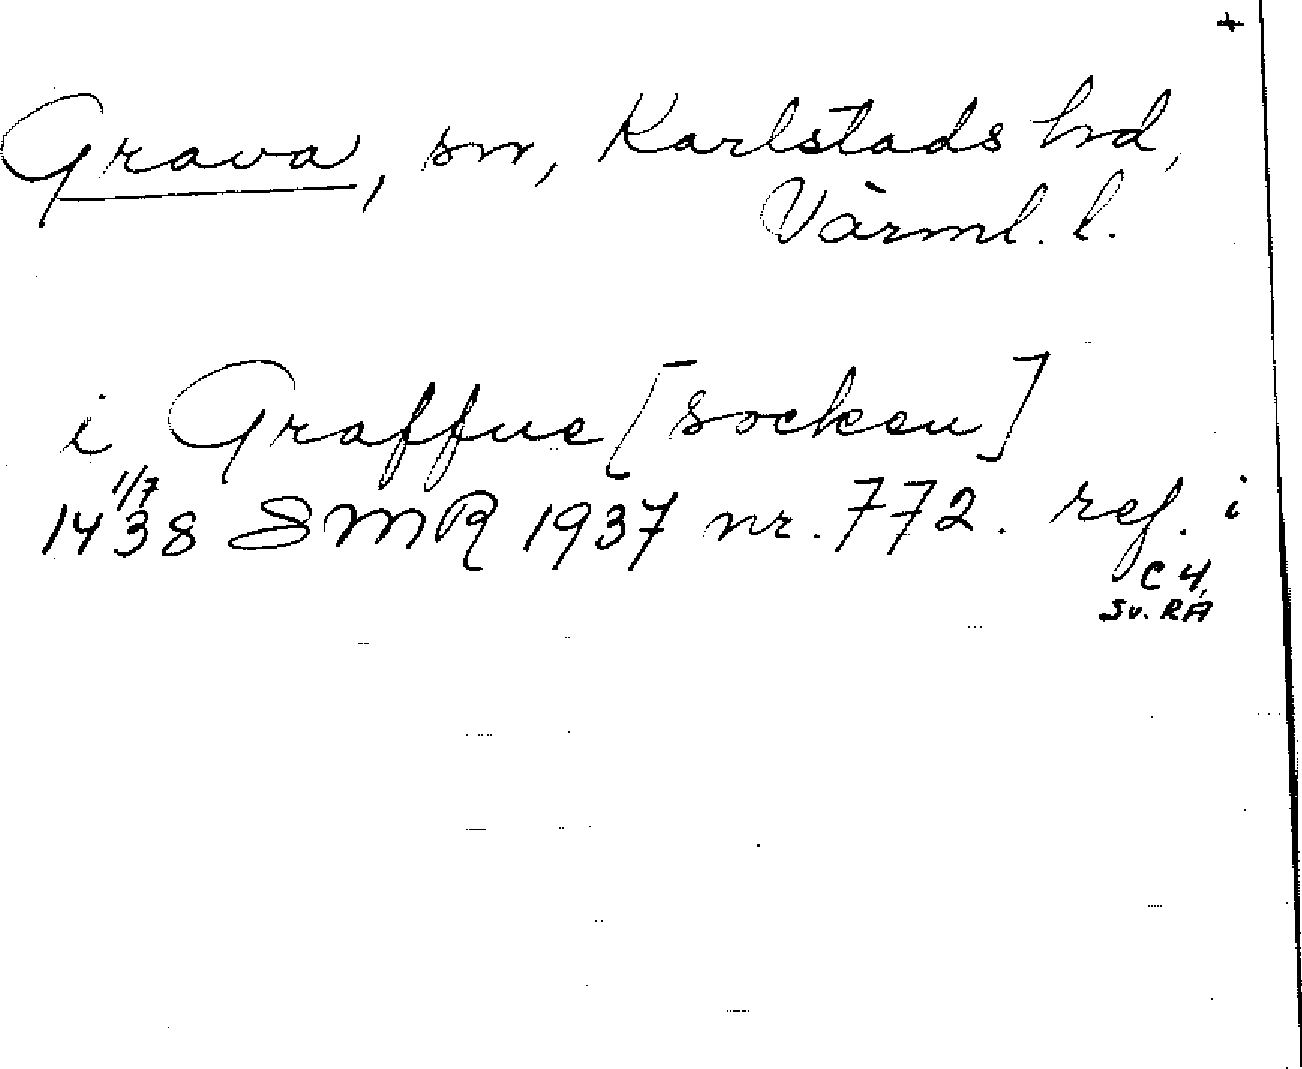 +
Grava, sn, Karlstads hd,
Värml. l.
i Graffue [socken]
1/7
1438 SMR 1937 nr. 772. ref. i
C 4,
Sv. RA